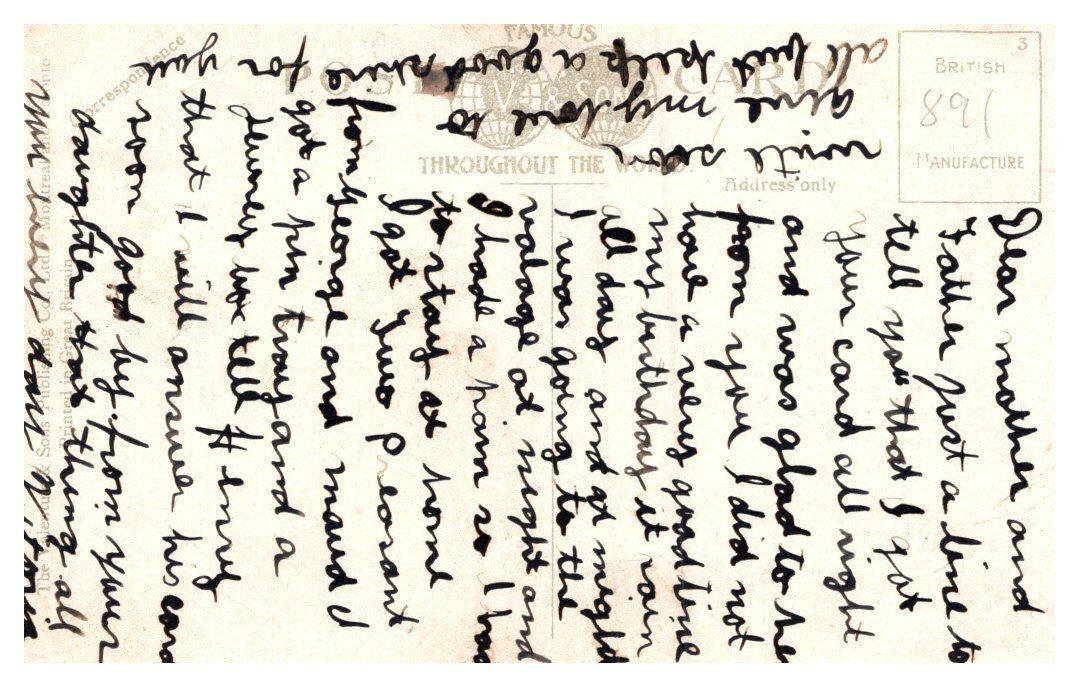 Dear mother and
Father Just a line to
tell you that I got
your card all right
and was glad to he
from you I did not
have a very good time
my birthday it rain
all day and at night
I was going to the
valage at night and
I had a pain so I had
to stay at home
I got two p
from george and maud I
got a pin tray and a
box tell
that I will answer his card
soon good by from your
daughter
all but help a good for you
give my love to
write soon
Correspondence
FAMOUS
POST CARD
V & SONS
THROUGHOUT THE WORLD.
Address only
3
BRITISH
891
MANUFACTURE
The Valentine & Sons Publishing Co. Ltd. Montreal and Toronto
Printed in Great Britain